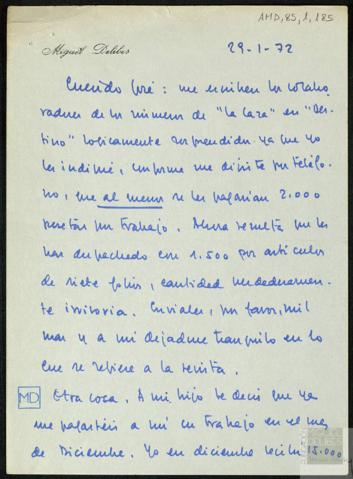 AMD,85,1,185
Miguel Delibes
29-1-72
Querido José: me escriben los colabo-
radores de los números de "La Caza" en "Des-
tino" lógicamente sorprendidos ya que yo
les indiqué, conforme me dijiste por teléfo-
no, que al menos se les pagarían 2.000
pesetas por trabajo. Ahora resulta que les
han despachado con 1.500 por artículos
de siete folios, cantidad verdaderamen-
te irrisoria. Enviales, por favor, mil
mas y a mi dejadme tranquilo en lo
que se refiere a la revista.
MD
Otra cosa. A mi hijo le decis que ya
me pagasteis a mí su trabajo en el mes
de Diciembre. Yo en diciembre recibí 15.000